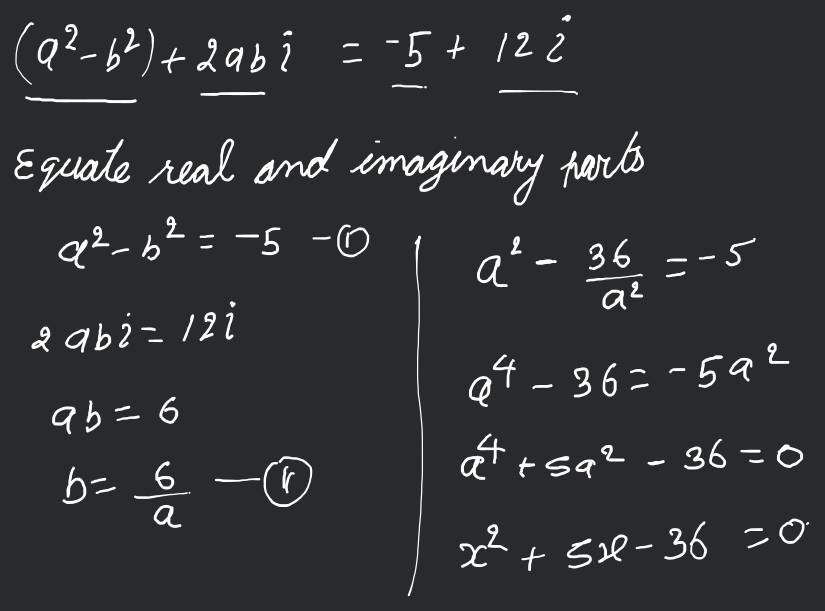 (a²-b²)+2abi = -5 + 12i
Equate real and imaginary parts
a²-b² = -5 -①
2abi = 12i
ab = 6
b = 6/a —①
a² - 36/a² = -5
a⁴ - 36 = -5a²
a⁴ + 5a² - 36 = 0
x² + 5x - 36 = 0